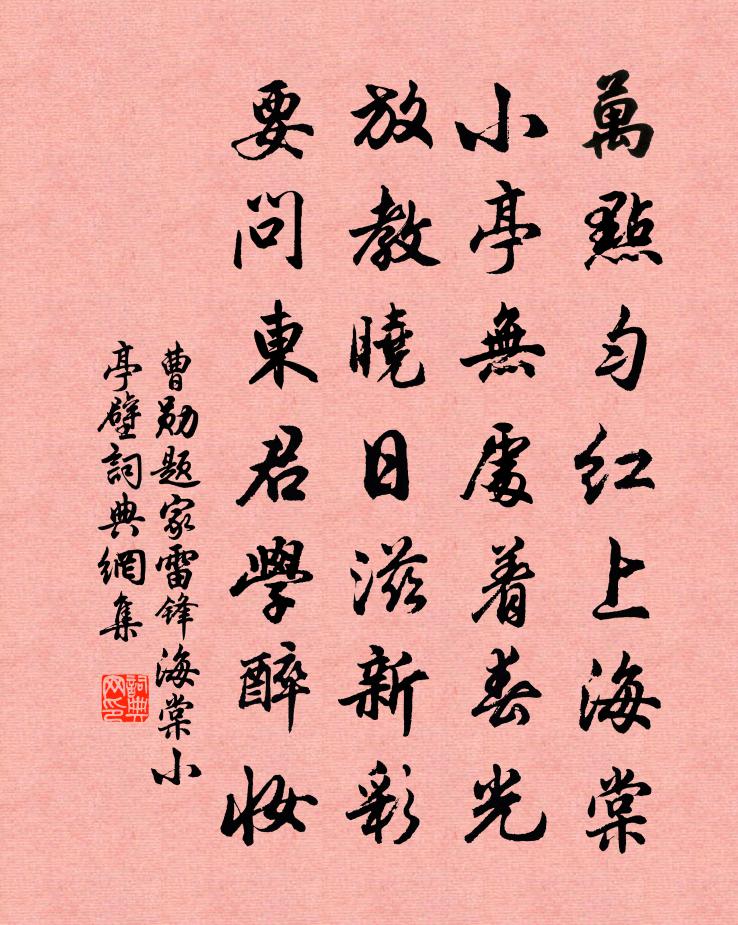 萬點勻紅上海棠
小亭無處着春光
放教曉日滋新彩
要問東君學醉妝
曹勛題家雷鋒海棠小
亭壁詞典網集
詞典
网印